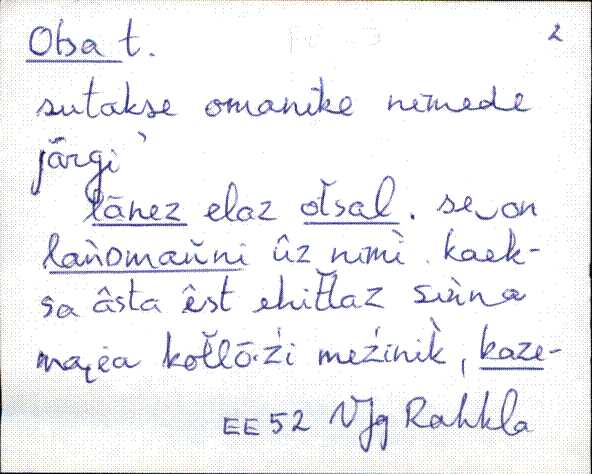 Otsa t. 2
sutakse omanike nimede
järgi
lānez elaz ot̆sal. se‿on
lan̆oman̆ni ûz nimì. kaek-
sa âsta êst ehit̆taz siǹna
maịa kot̆lō·źi meźinik̀, kaze-
EE 52 VJg Rahkla